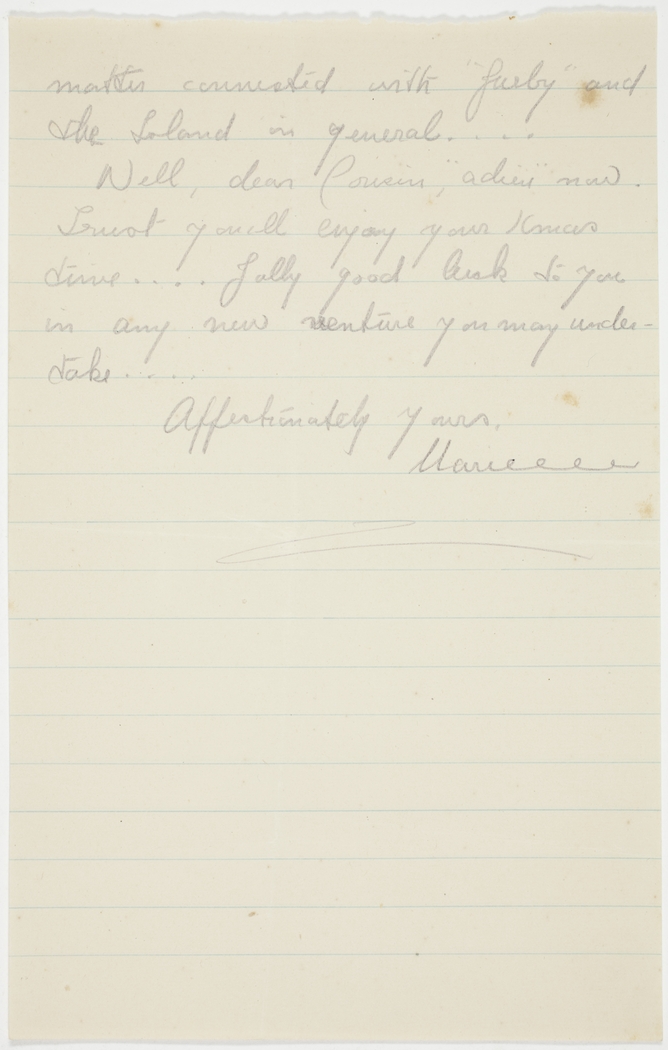 matter connected with "Jueby" and
the Island in general. . . .
Well, dear Cousin, "adieu" now.
Trust you'll enjoy your Xmas
time. . . . Jolly good luck to you
in any new venture you may under-
take. . . . .
Affectionately yours.